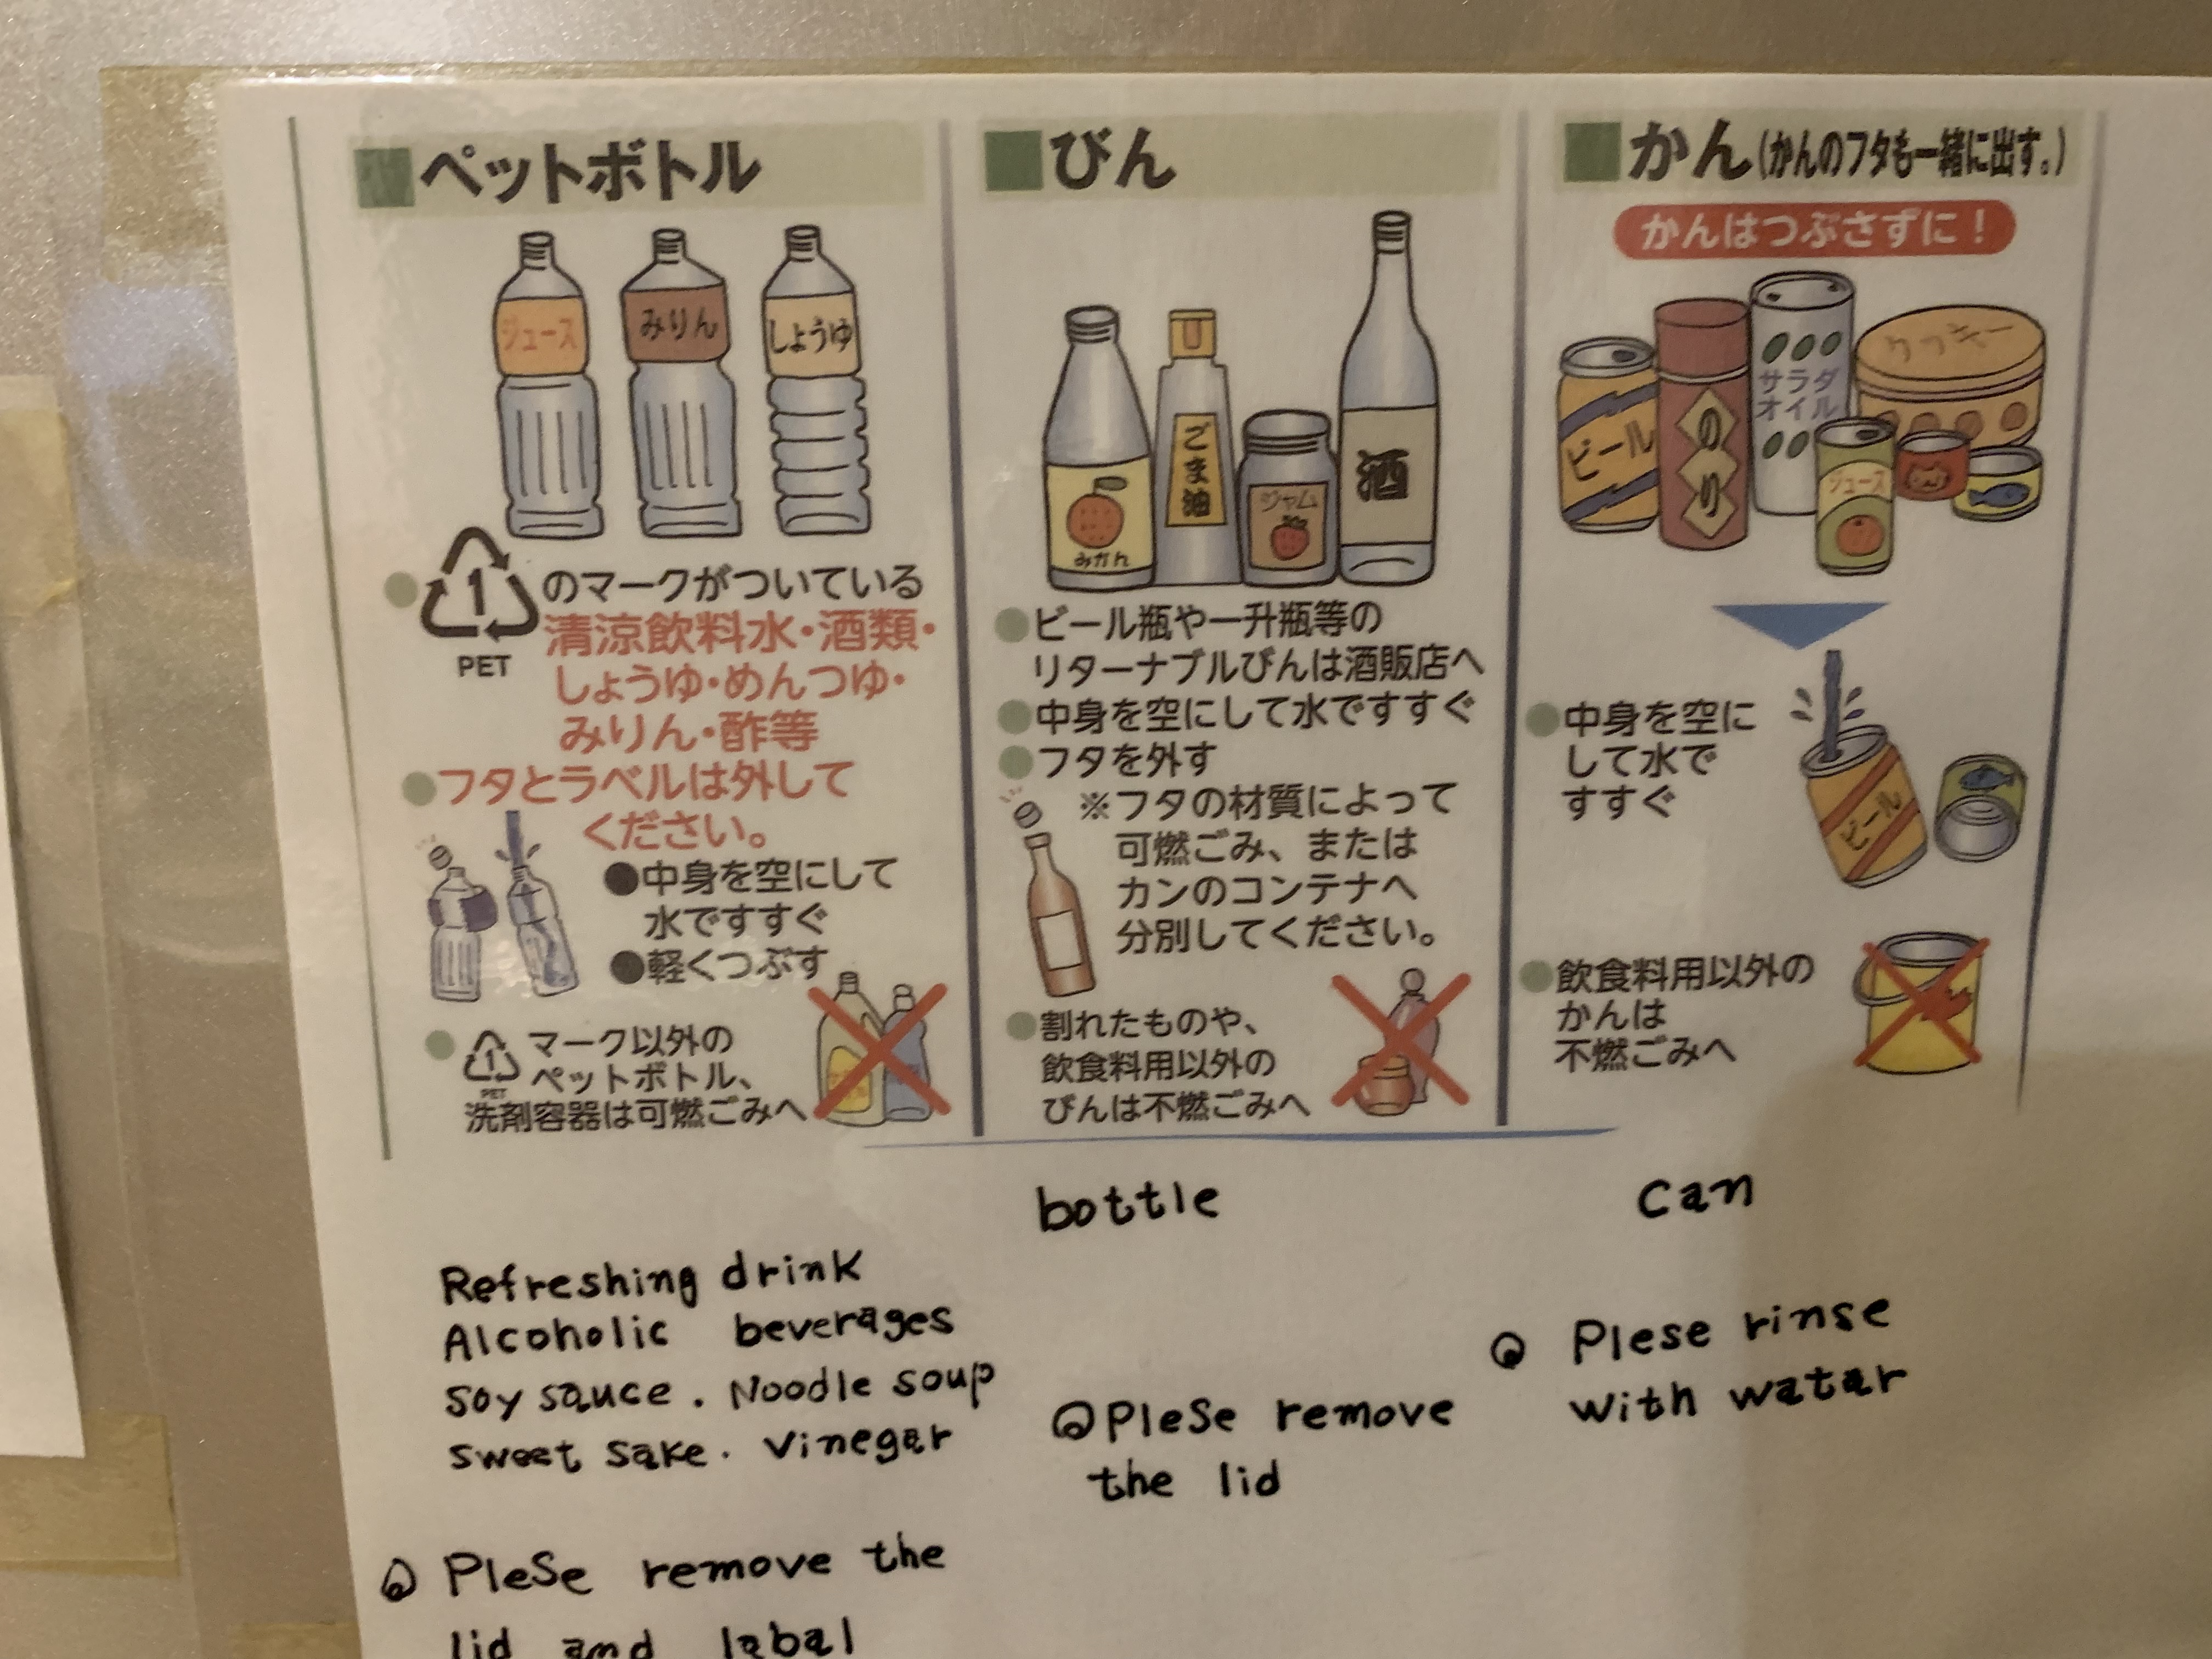 ペットボトル
ジュース
みりん
しょうゆ
1
PET
のマークがついている
清涼飲料水・酒類・
しょうゆ・めんつゆ・
みりん・酢等
フタとラベルは外して
ください。
●中身を空にして
水ですすぐ
●軽くつぶす
1
PET
マーク以外の
ペットボトル、
洗剤容器は可燃ごみへ
びん
みかん
ごま油
ジャム
酒
ビール瓶や一升瓶等の
リターナブルびんは酒販店へ
中身を空にして水ですすぐ
フタを外す
※フタの材質によって
可燃ごみ、または
カンのコンテナへ
分別してください。
割れたものや、
飲食料用以外の
びんは不燃ごみへ
かん(かんのフタも一緒に出す。)
かんはつぶさずに!
ビール
のり
サラダ
オイル
クッキー
ジュース
中身を空に
して水で
すすぐ
ビール
飲食料用以外の
かんは
不燃ごみへ
Refreshing drink
Alcoholic beverages
soy sauce. Noodle soup
sweet sake. vinegar
Plese remove the
lid and labal
bottle
Plese remove
the lid
can
Plese rinse
with watar